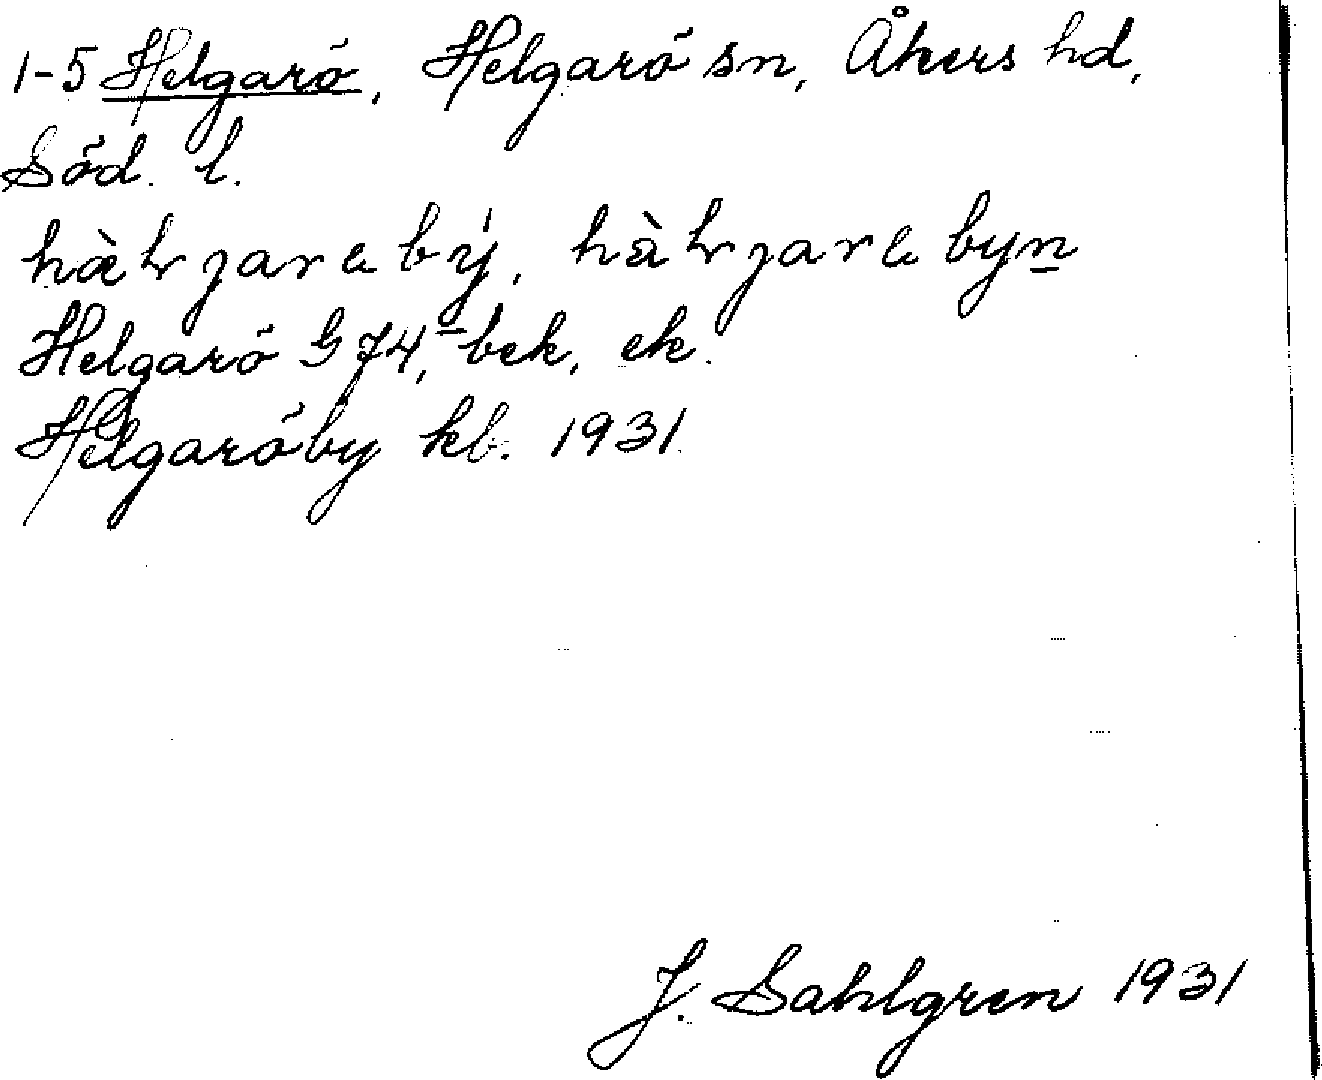 1-5 Helgarö, Helgarö sn, Åkers hd,
Söd. l.
Helgarö G 74, – bek, ek.
Helgaröby kb. 1931.
J. Sahlgren 1931